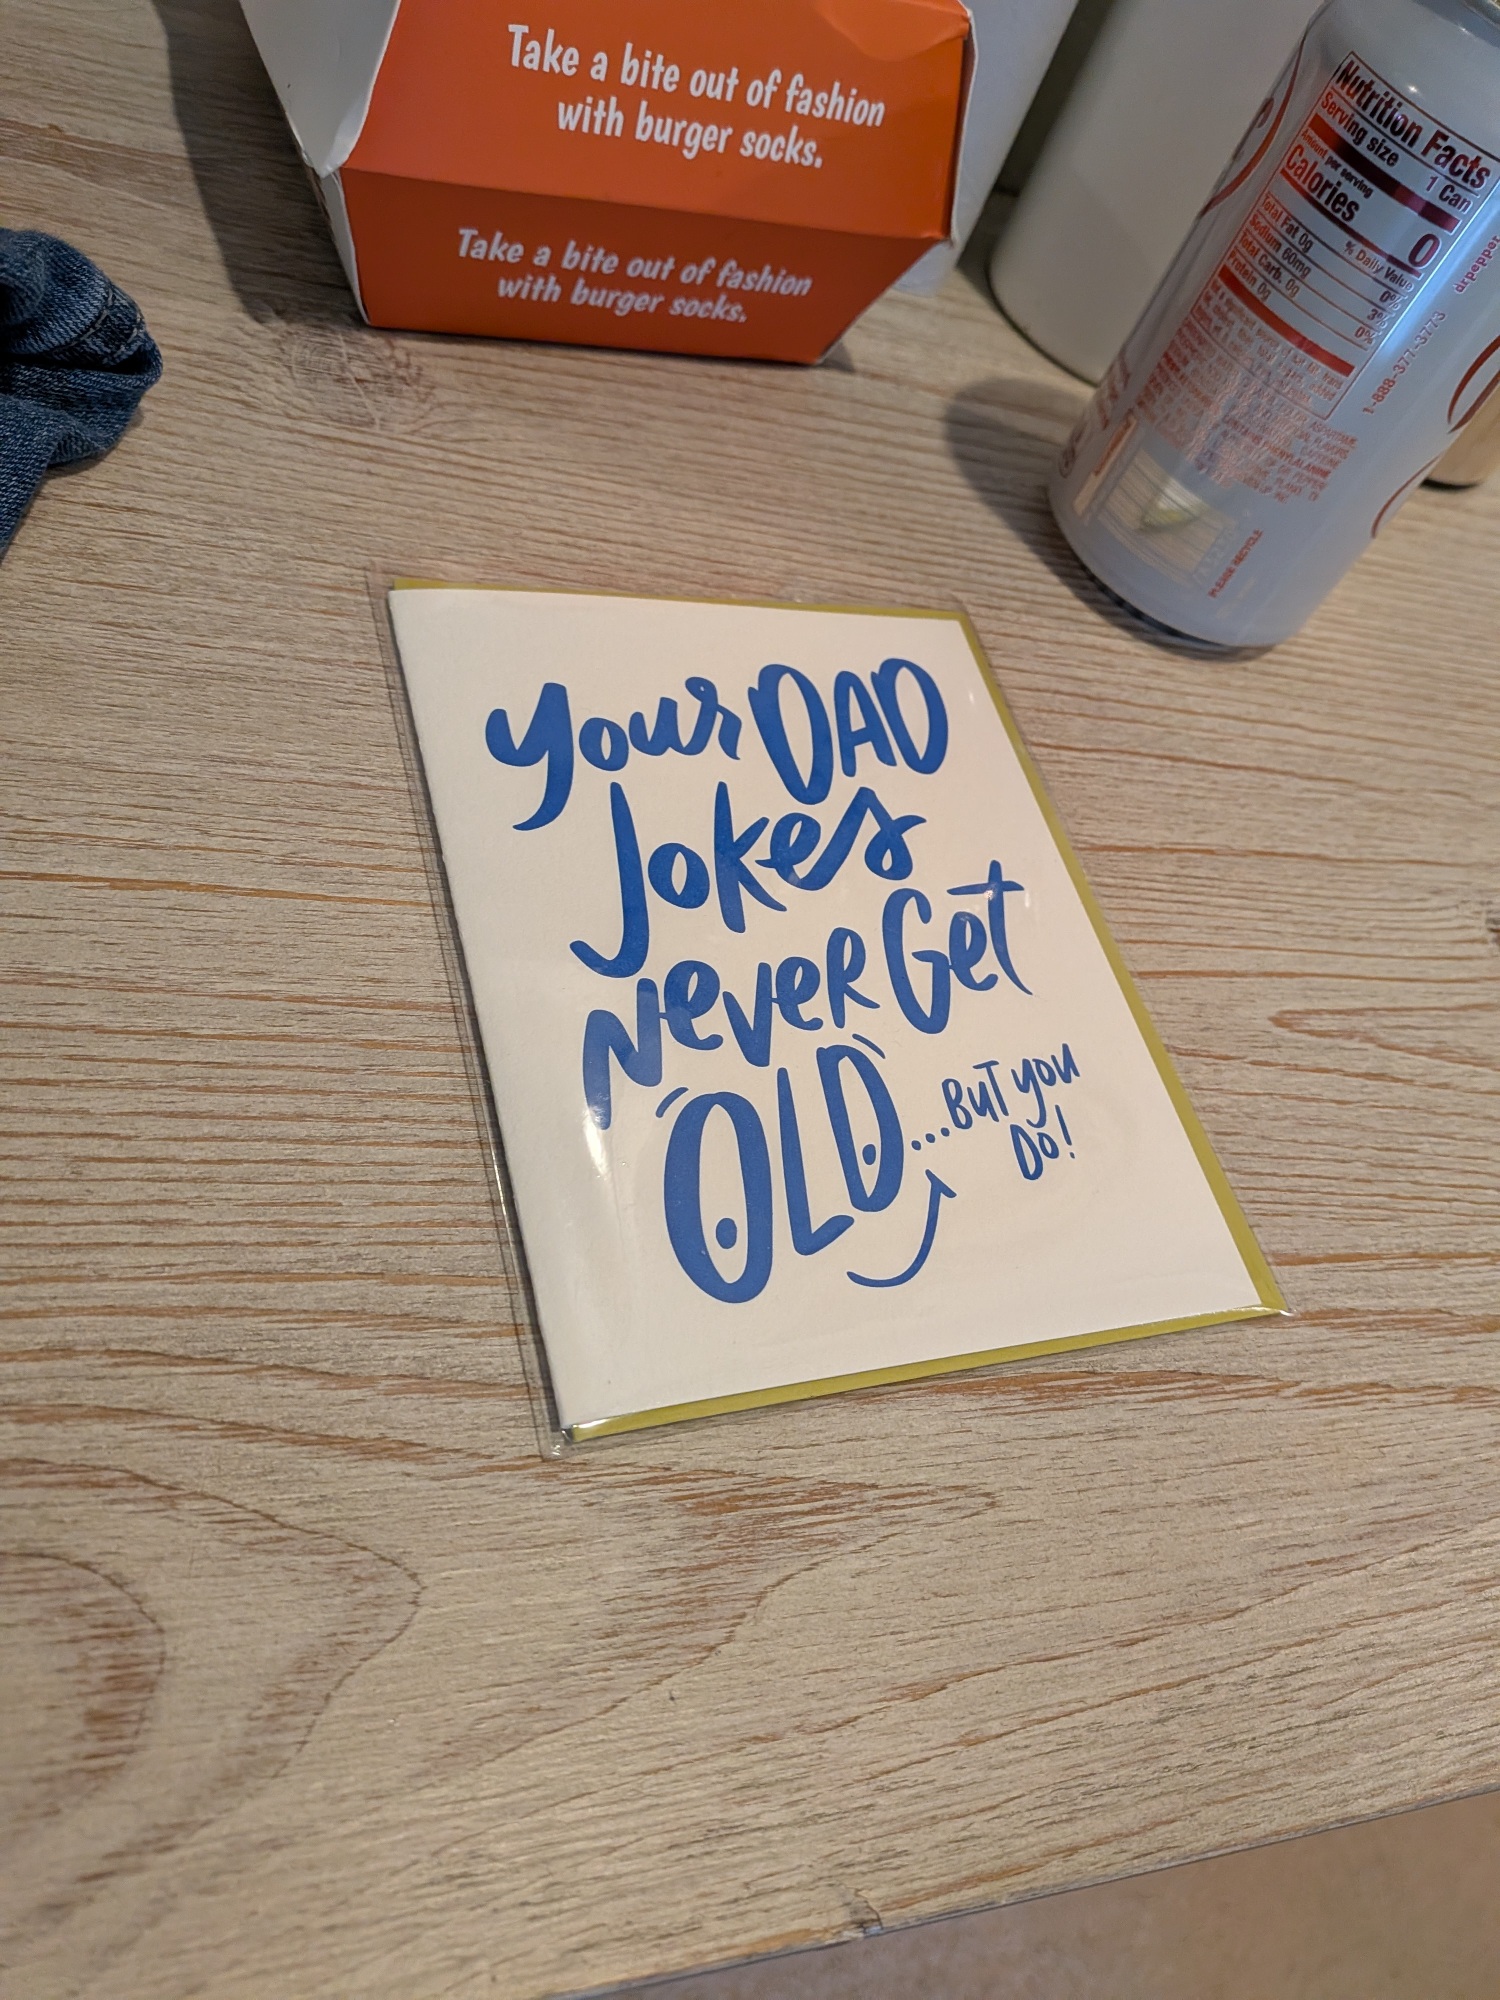 Take a bite out of fashion
with burger socks.
Take a bite out of fashion
with burger socks.
Nutrition Facts
Serving size 1 Can
Amount per serving
Calories 0
% Daily Value
Total Fat 0g 0%
Sodium 60mg 3%
Total Carb. 0g 0%
Protein 0g
drpepper
1-888-377-3773
PLEASE RECYCLE
your DAD
Jokes
Never Get
OLD
...BUT you
Do!